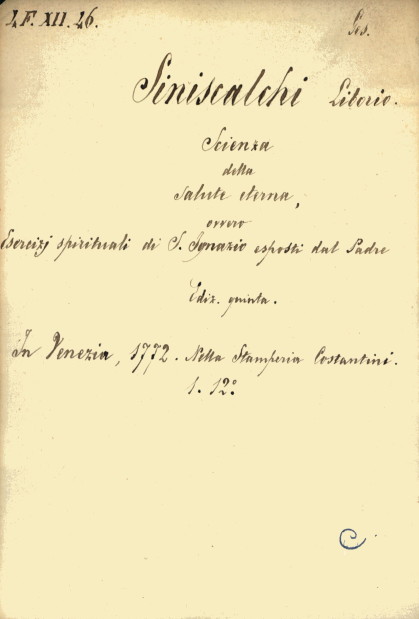 2.F.XII.26.
Ges.
Siniscalchi Liborio.
Scienza
della
salute eterna,
ovvero
Esercizj spirituali di S. Ignazio esposti dal Padre
Ediz. quinta.
In Venezia, 1772. Nella Stamperia Costantini.
1. 12º
C